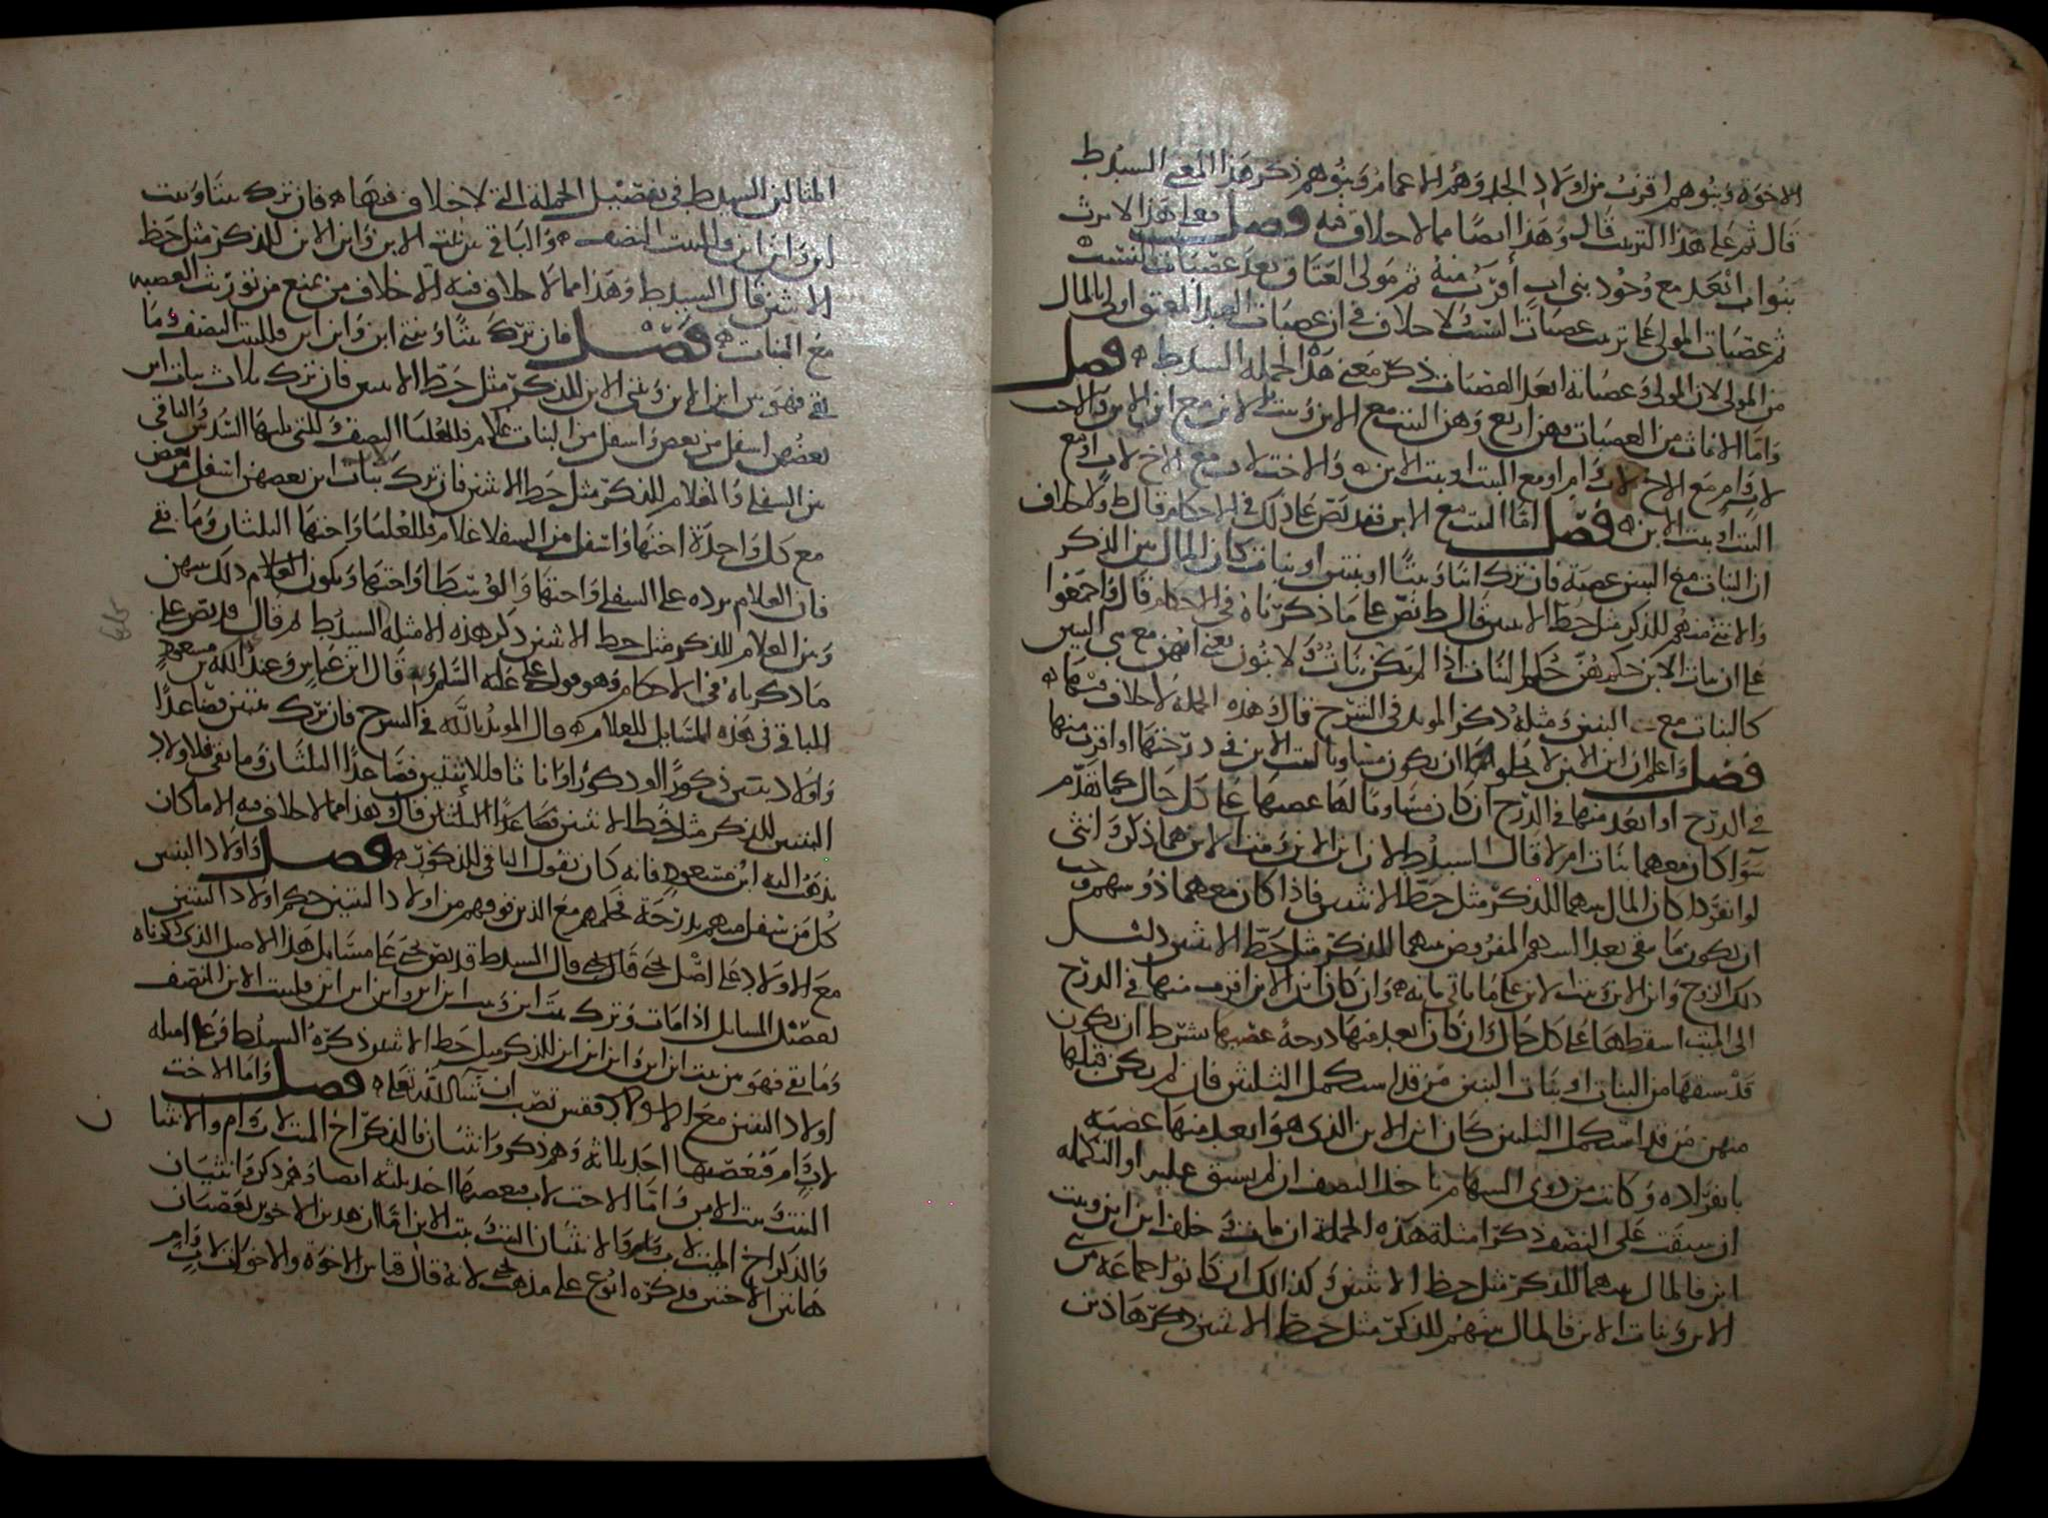 الاخوة وبنوهم اقرب من اولاد الجد وهم الاعمام وبنوهم ذكر هذا المعنى السيد ط
قال ثم على هذا الترتيب قال وهذا ايضا مما لا خلاف فيه فصل فعلى هذا لا يرث
بنوا اب ابعد مع وجود بني اب اقرب منه ثم مولى العتاق بعد عصبات النسب
ثم عصبات المولى على ترتيب عصبات النسب ولا خلاف في ان عصبات العبد المعتق اولى بالمال
من المولى لان المولى وعصباته ابعد العصبات ذكر معنى هذه الجملة السيد ط فصل
واما الاناث من العصبات فهن اربع وهن البنت مع الابن وبنت الابن مع ابن الابن والاخت
لاب وام مع الاخ لاب وام او مع البنت او بنت الابن والاخت لاب مع الاخ لاب او مع
البنت او بنت الابن فصل اما البنت مع الابن فقد نص على ذلك في الاحكام قال ط ولا خلاف
ان البنات مع البنين عصبة فان ترك ابنا وبنتا او بنتين او بنات كان المال بين الذكر
والانثى منهم للذكر مثل حظ الانثيين قال ط نص على ما ذكرناه في الاحكام قال واجمعوا
على ان بنات الابن حكمهن حكم البنات اذا لم يكن بنات ولا بنون يعني انهن مع بني البنين
كالبنات مع البنين ومثله ذكر المويد في الشرح قال وهذه الجملة لا خلاف فيها
فصل واعلم ان ابن الابن لا يخلو اما ان يكون مساويا لبنت الابن في درجتها او اقرب منها
في الدرج او ابعد منها في الدرج ان كان مساويا لها عصبها على كل حال كما تقدم
سوا كان معهما بنات ام لا قال السيد ط لان ابن الابن وبنت الابن هما ذكر وانثى
لو انفردا كان المال بينهما للذكر مثل حظ الانثيين فاذا كان معهما ذو سهم وجب
ان يكون ما بقي بعد السهم المفروض بينهما للذكر مثل حظ الانثيين
ذلك الزوج وابن الابن وبنت الابن على ما ياتي بيانه وان كان ابن الابن اقرب منها في الدرج
الى الميت اسقطها على كل حال وان كان ابعد منها درجة عصبها بشرط ان يكون
قد سبقها من البنات او بنات البنين من قد استكمل الثلثين فان لم يكن قبلها
منهن من قد استكمل الثلثين كان ابن الابن الذي هو ابعد منها عصبة
بانفراده وكانت من ذوي السهام تاخذ النصف ان لم يسبق عليه او التكملة
ان سبقت على النصف ذكر امثلة هذه الجملة ان مات وخلف ابن ابن وبنت
ابن فالمال بينهما للذكر مثل حظ الانثيين وكذلك ان كانوا جماعة من بني
الابن وبنات الابن فالمال بينهم للذكر مثل حظ الانثيين ذكر هاذين
المثالين السيد ط في تفصيل الجملة التي لا خلاف فيها فان ترك بنتا وبنت
ابن وابن ابن فللبنت النصف والباقي بين بنت الابن وابن الابن للذكر مثل حظ
الانثيين قال السيد ط وهذا مما لا خلاف فيه الا خلاف من يمنع من توريث العصبه
مع البنات فصل فان ترك بنتا وبنتي ابن وابن ابن فللبنت النصف وما
بقي فهو بين ابن الابن وبنتي الابن للذكر مثل حظ الانثيين فان ترك ثلاث بنات ابن
بعضهن اسفل من بعض واسفل من البنات غلام فللعليا النصف وللتي تليها السدس والباقي
بين السفلى والغلام للذكر مثل حظ الانثيين فان ترك بنات ابن بعضهن اسفل من بعض
مع كل واحدة اختها واسفل من السفلا غلام فللعليا واختها الثلثان وما بقي
فان الغلام يرده على السفلى واختها والوسطا واختها ويكون الغلام ذلك بينهن
وبين الغلام للذكر مثل حظ الانثيين ذكر هذه الامثلة السيد ط ثم قال قد نص على
ما ذكرناه في الاحكام وهو قول علي عليه السلم وبه قال ابن عباس وعند الله بن مسعود
الباقي في هذه المسايل للغلام قال المويد بالله في الشرح فان ترك بنتين فصاعدا
واولاد بنين ذكورا او ذكورا واناثا فللابنتين فصاعدا الثلثان وما بقي فلاولاد
البنين للذكر مثل حظ الانثيين فصاعدا الثلثان قال وهذا مما لا خلاف فيه الا ما كان
يذهب اليه ابن مسعود فانه كان يقول الباقي للذكور فصل واولاد البنين
كل من سفل منهم بدرجة فحكمهم مع الذين فوقهم من اولاد البنين حكم اولاد البنين
مع الاولاد على اصل يحيى قال يحيى قال السيد ط قد نص يحيى على مسايل هذا الاصل الذي ذكرناه
تفصيل المسايل اذا مات وترك بنت ابن وبنت ابن ابن وابن ابن ابن فلبنت الابن النصف
وما بقي فهو بين بنت ابن ابن وابن ابن ابن للذكر مثل حظ الانثيين ذكره السيد ط وعلى امثله
اولاد البنين مع الاولاد فقس تصب ان شآ الله تعلى فصل واما الاخت
لاب وام فيعصبها احد ثلاثة وهم ذكر وانثيان فالذكر اخ الميت لاب وام والانثيا
البنت وبنت الابن واما الاخت لاب فيعصبها احد ثلثه ايضا وهم ذكر وانثيان
والذكر اخ الميت لاب والانثيان البنت وبنت الابن اما ان هذين الاخوين يعصبان
هاتين الاختين فذكره ابوع على مذهب يحيى لانه قال قياس الاخوة والاخوات لاب وام